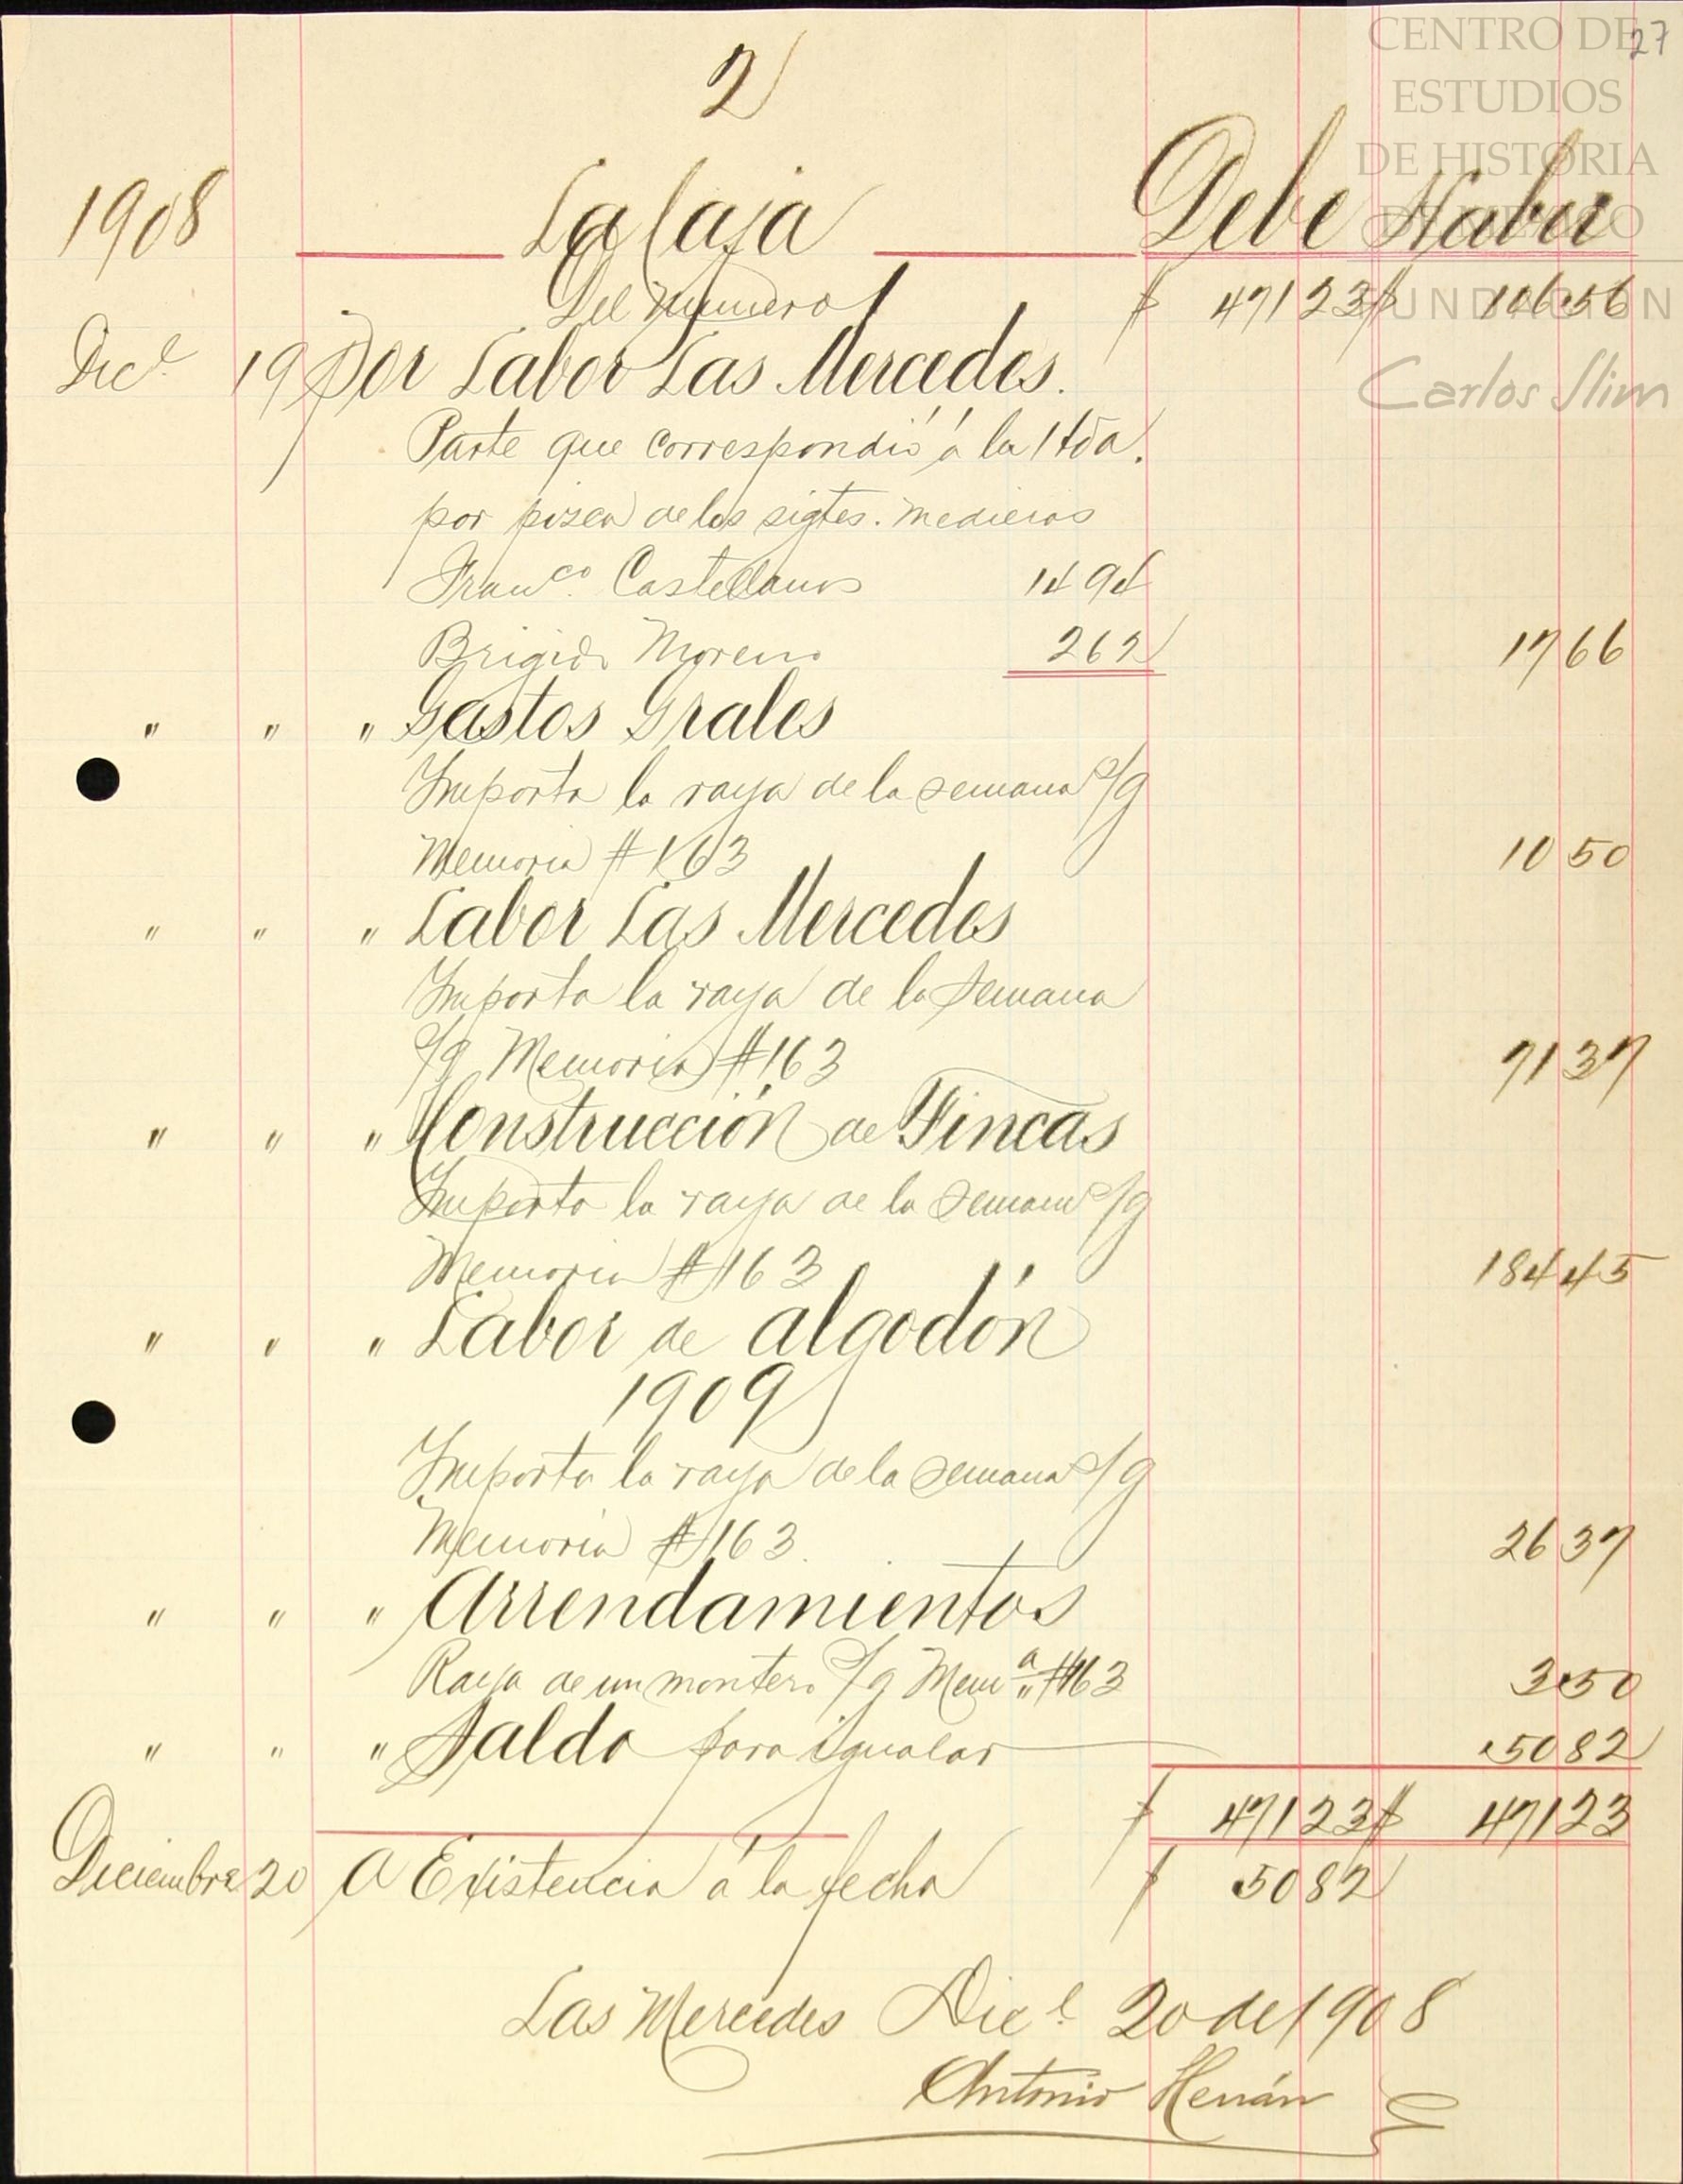 CENTRO DE
ESTUDIOS
DE HISTORIA
DE MÉXICO
FUNDACIÓN
Carlos Slim
27
2
1908 La Caja Debe Haber
Del Número 1 $ 471 23 $ 106 56
Dice. 19 Por Labor Las Mercedes.
Parte que correspondió á la Htda.
por pizca de los sigtes. medieros
Franco. Castellanos 14 94
Brigido Moreno 2 62 17 66
" " " Gastos Grales
Importa la raya de la semana s/g
Memoria # 163 10 50
" " " Labor Las Mercedes
Importa la raya de la semana
s/g Memoria #163 71 37
" " " Construcción de Fincas
Importa la raya de la semana s/g
Memoria #163 184 45
" " " Labor de algodón
1909
Importa la raya de la semana s/g
Memoria #163. 26 37
" " " Arrendamientos
Raya de un montero s/g Mema #163 3 50
" " " Saldo para igualar 50 82
$ 471 23 $ 471 23
Diciembre 20 A Existencia á la fecha $ 50 82
Las Mercedes Dice. 20 de 1908
Antonio